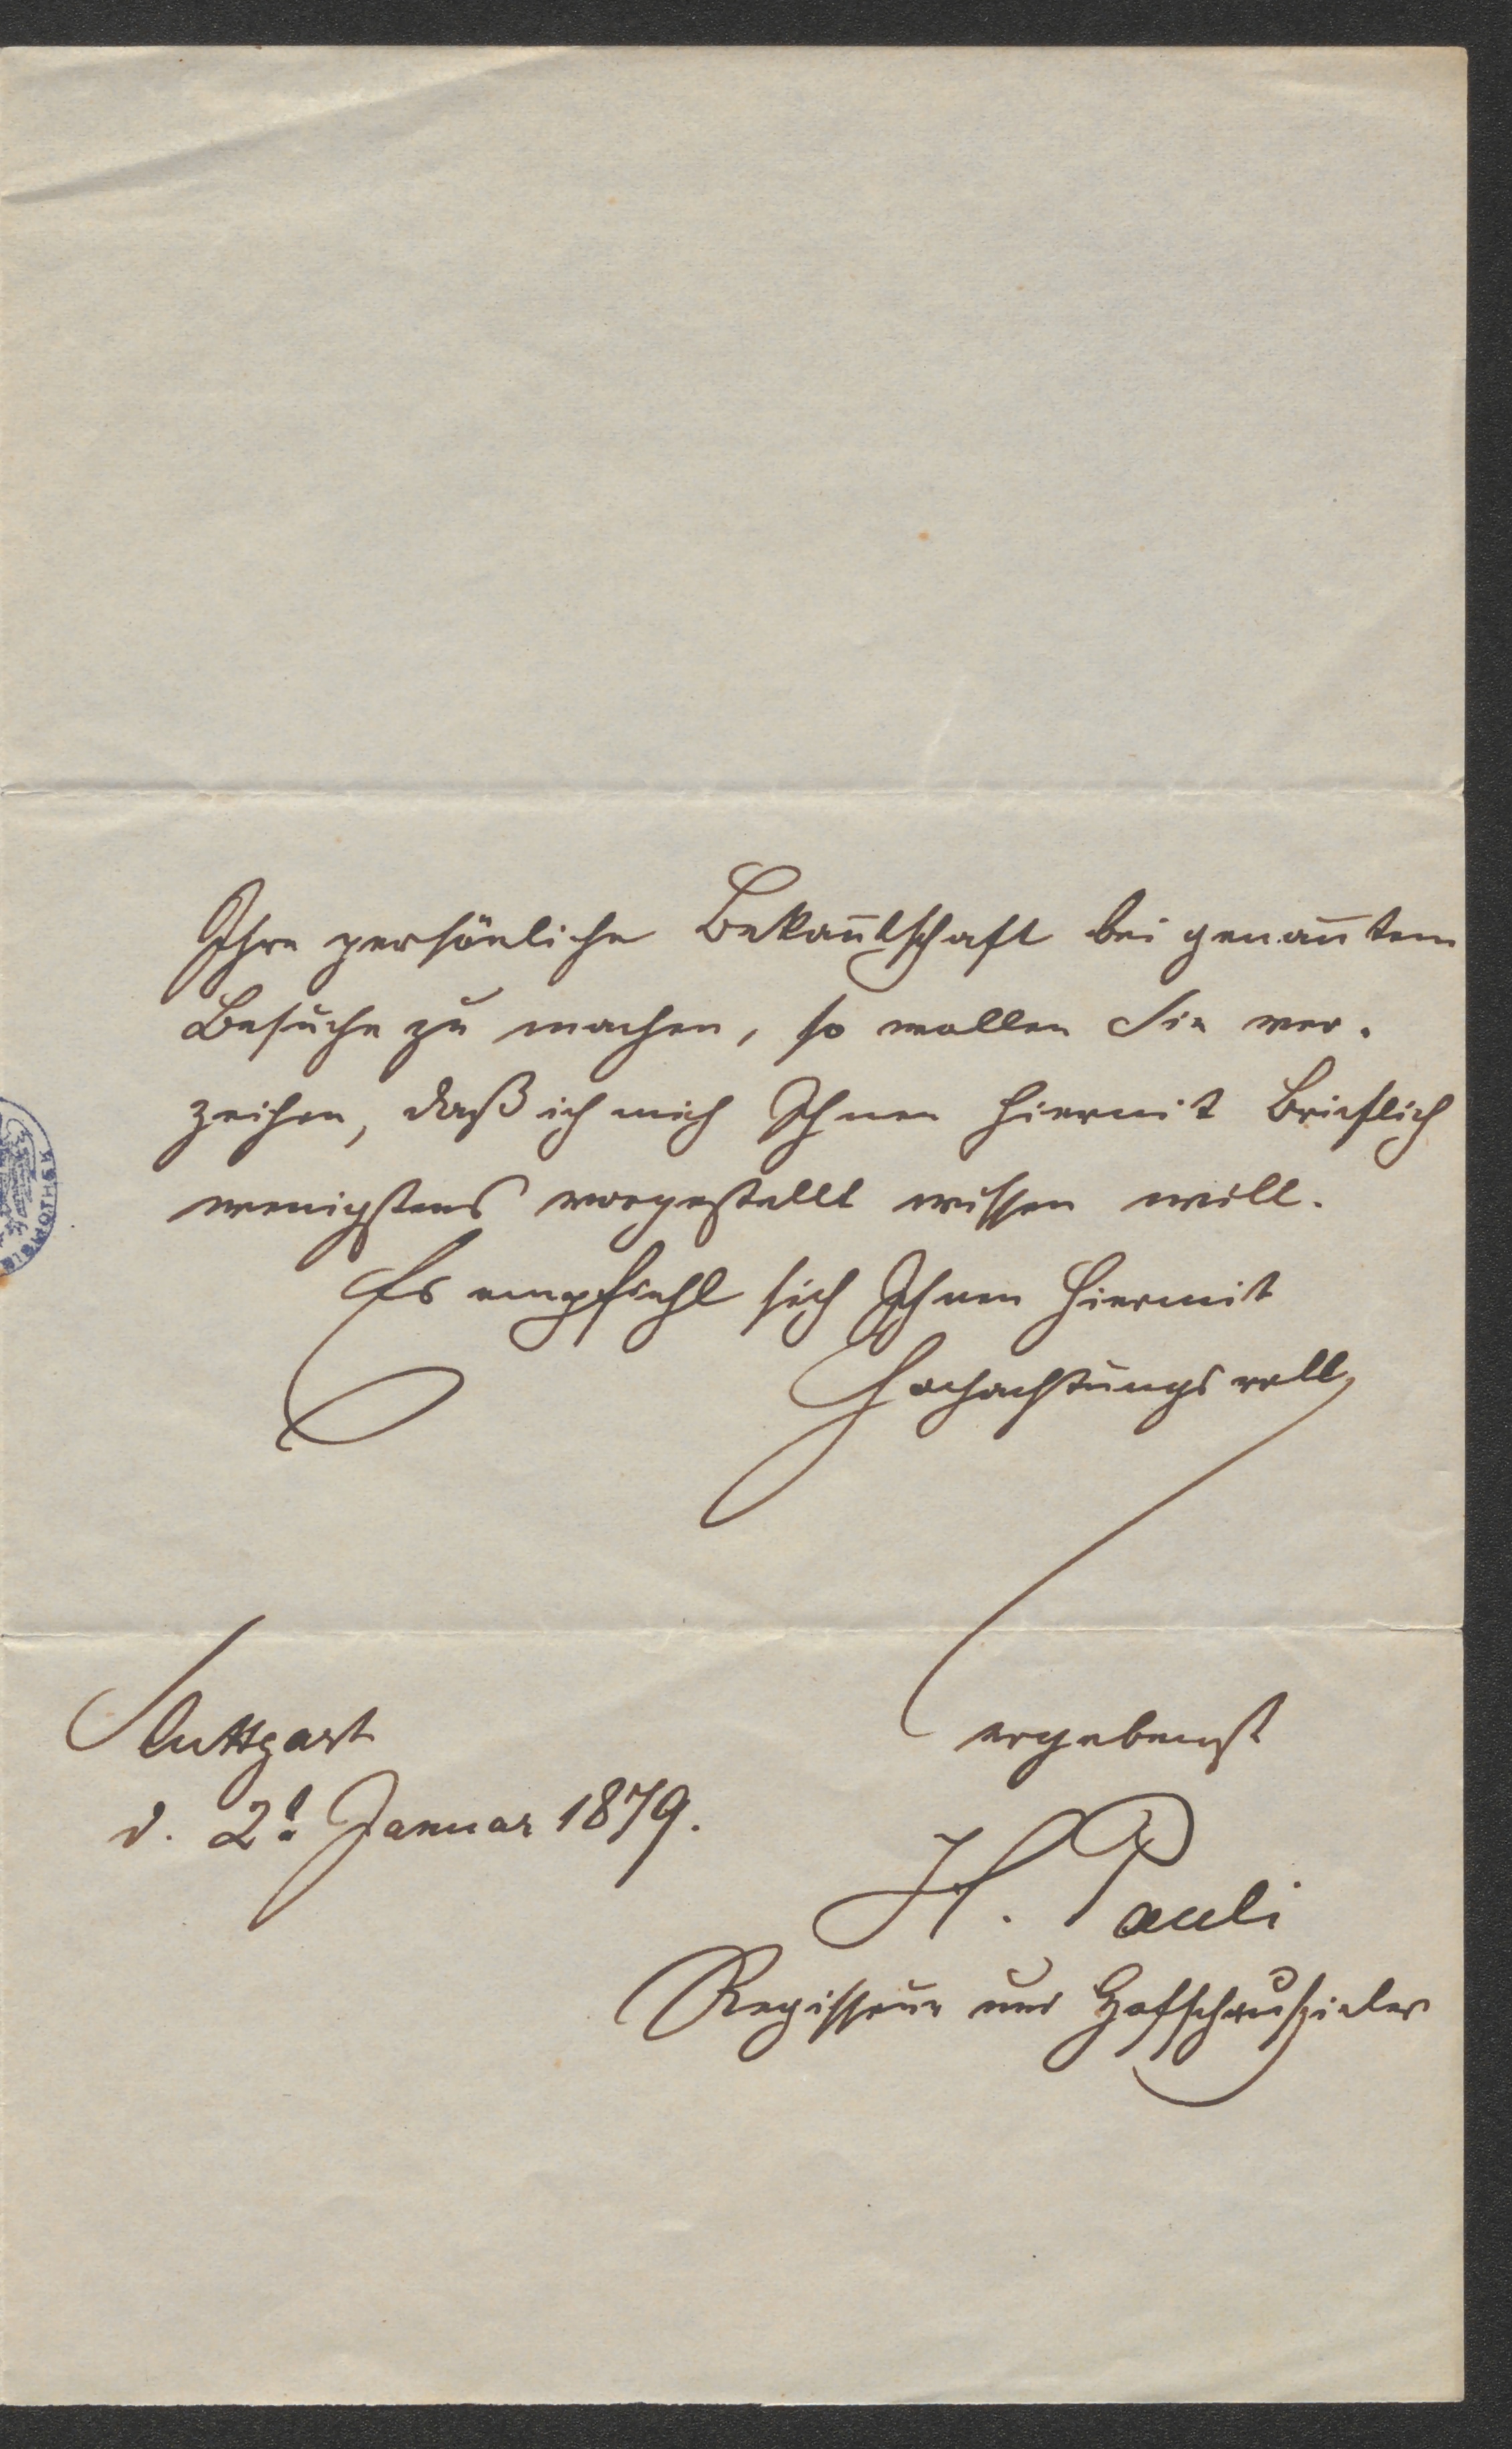 Ihre persönliche Bekan̄tschaft bei genan̄tem
Besuche zu machen, so wollen Sie ver-
zeihen, daß ich mich Ihnen hiermit brieflich
wenigstens vorgestellt wissen will.
Es empfiehlt sich Ihnen hiermit
Hochachtungsvoll,
ergebenst
Stuttgart
d. 2t. Januar 1879.
H. Pauli
Regisseur und Hofschauspieler
BIBLIOTHEK